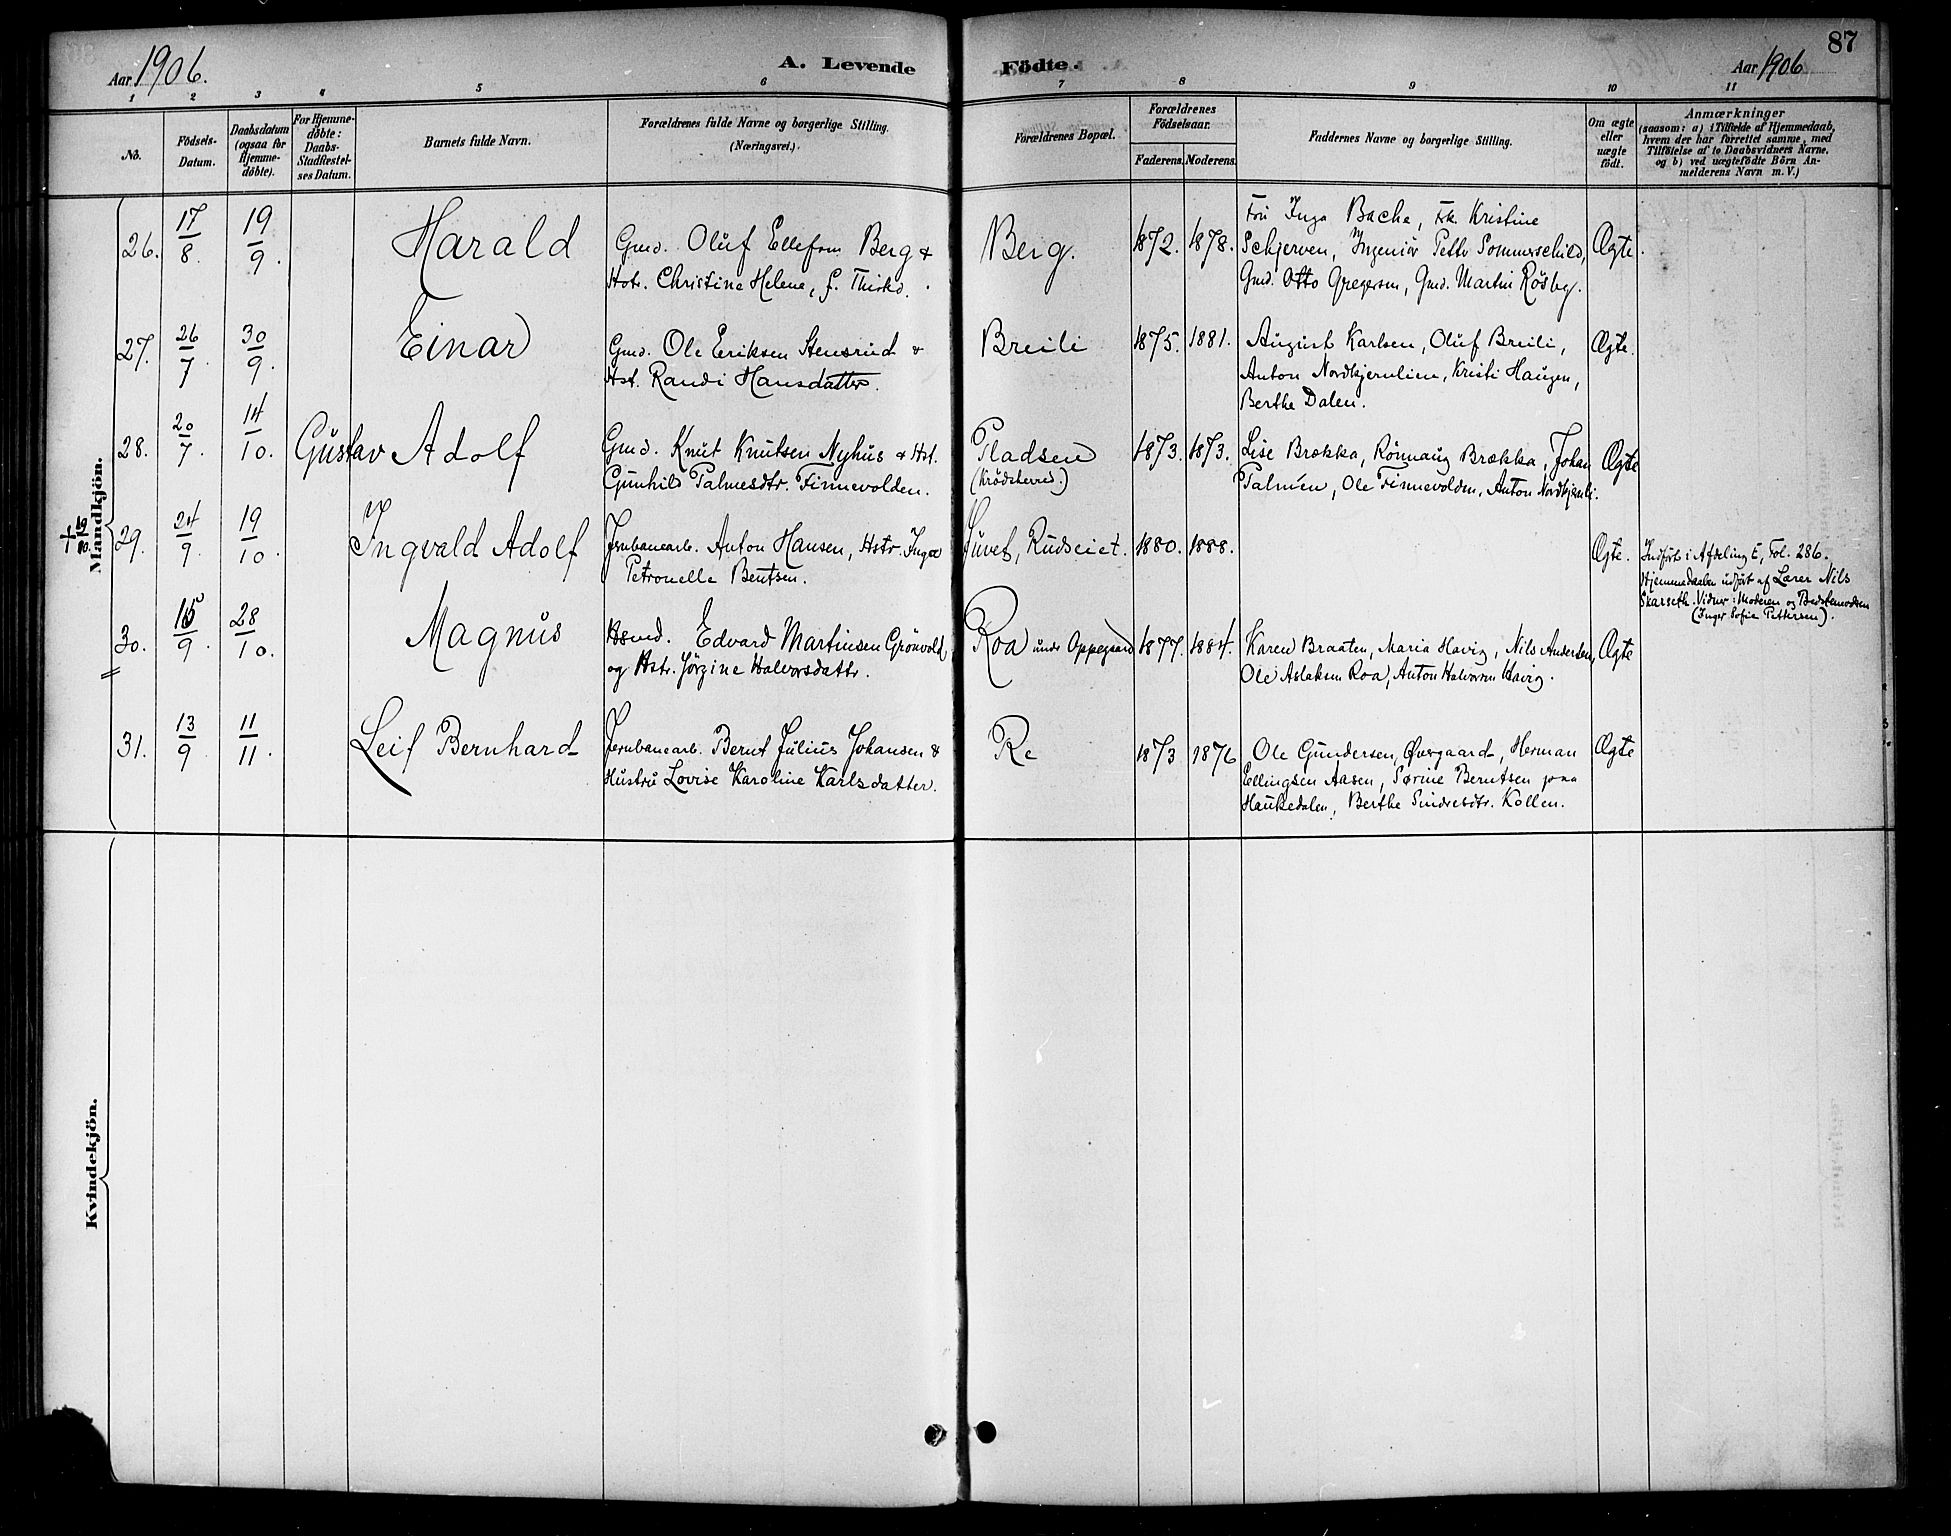 Aar 1906.
A. Levende Fødte.
Aar 1906
87
1 2 3 4 5 6 7 8 9 10 11
No.
Födsels-
Datum.
Daabsdatum
(ogsaa for
Hjemme-
døbte).
For Hjemme-
døbte:
Daabs-
Stadfæstel-
ses Datum.
Barnets fulde Navn.
Forældrenes fulde Navne og borgerlige Stilling.
(Næringsvei.)
Forældrenes Bopæl.
Forældrenes
Födselsaar.
Faderens. Moderens.
Faddernes Navne og borgerlige Stilling.
Om ægte
eller
uægte
født.
Anmærkninger
(saasom: a) i Tilfælde af Hjemmedaab,
hvem der har forrettet samme, med
Tilföielse af to Daabsvidners Navne,
og b) ved uægtefödte Börn An-
melderens Navn m. V.)
Mandkjön.
26. 17/8. 19/9. Harald
Gmd. Oluf Ellefsen Berg &
Hstr. Christine Helene, f.
Berg. 1872. 1878.
Fru Inga Bache, Frk. Kristine
Schjerven, Ingeniør Petter Sommerschild,
Gmd. Otto Gregersen, Gmd. Martin Rösby.
Ægte.
27. 26/7. 30/9. Einar
Gmd. Ole Eriksen Stensrud &
Hst. Randi Hansdatter.
Breili 1875. 1881.
August Karlsen, Oluf Breili,
Anton Nordkjernlien, Kristi Haugen,
Berthe Dalen.
Ægte.
28. 20/7. 14/10. Gustav Adolf
Gmd. Knut Knutsen Nyhus & Hst.
Gunhild Palmesdtr. Finnevolden.
Pladsen
(Krødsherred.)
1873. 1873.
Lise Brækka, Rönnaug Brækka, Johan
Palmén, Ole Finnevolden, Anton Nordkjernli.
Ægte
29. 24/9. 19/10. Ingvald Adolf
Jernbanearb. Anton Hansen, Hstr. Inga
Petronelle Bentsen.
Juvet, Rudseiet. 1880. 1888.
Ægte.
Indført i Afdeling E, Fol. 286.
Hjemmedaaben udført af Lærer Nils
Skarseth. Vidner: Moderen og Bedstemodren
(Inger Sofie Pettersen).
30. 15/9. 28/10. Magnus
Hsmd. Edvard Martinsen Grönvold
og Hstr. Jörgine Halvorsdatter.
Roa under Oppegaard 1877. 1884.
Karen Braaten, Maria Høvig, Nils Andersen,
Ole Aslaksen Roa, Anton Halvorsen Høvig.
Ægte
31. 13/9. 11/11. Leif Bernhard
Jernbanearb. Bernt Julius Johansen &
Hustru Lovise Karoline Karlsdatter.
Re 1873 1876
Ole Gundersen, Øvrgaard, Herman
Ellingsen Aasen, Sørine Berntsen
Haukedalen, Berthe Sindresdtr. Kollen.
Ægte
Kvindekjön.